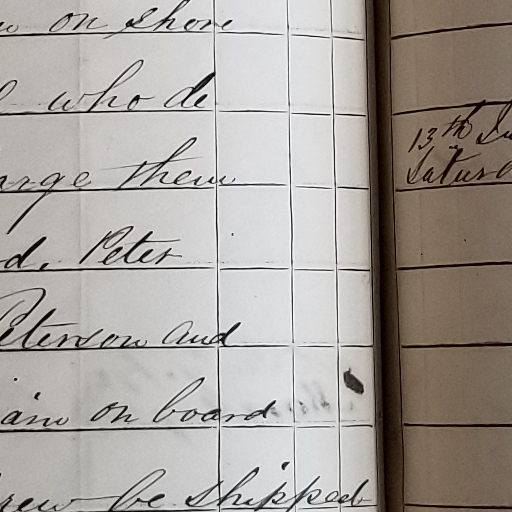 on shore
who de
them
Peter
Peterson and
on board
be shipped
13th
Satur